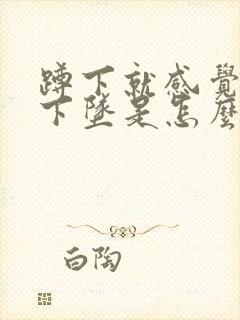 蹲下就感覺
下墜是怎麼
白陶